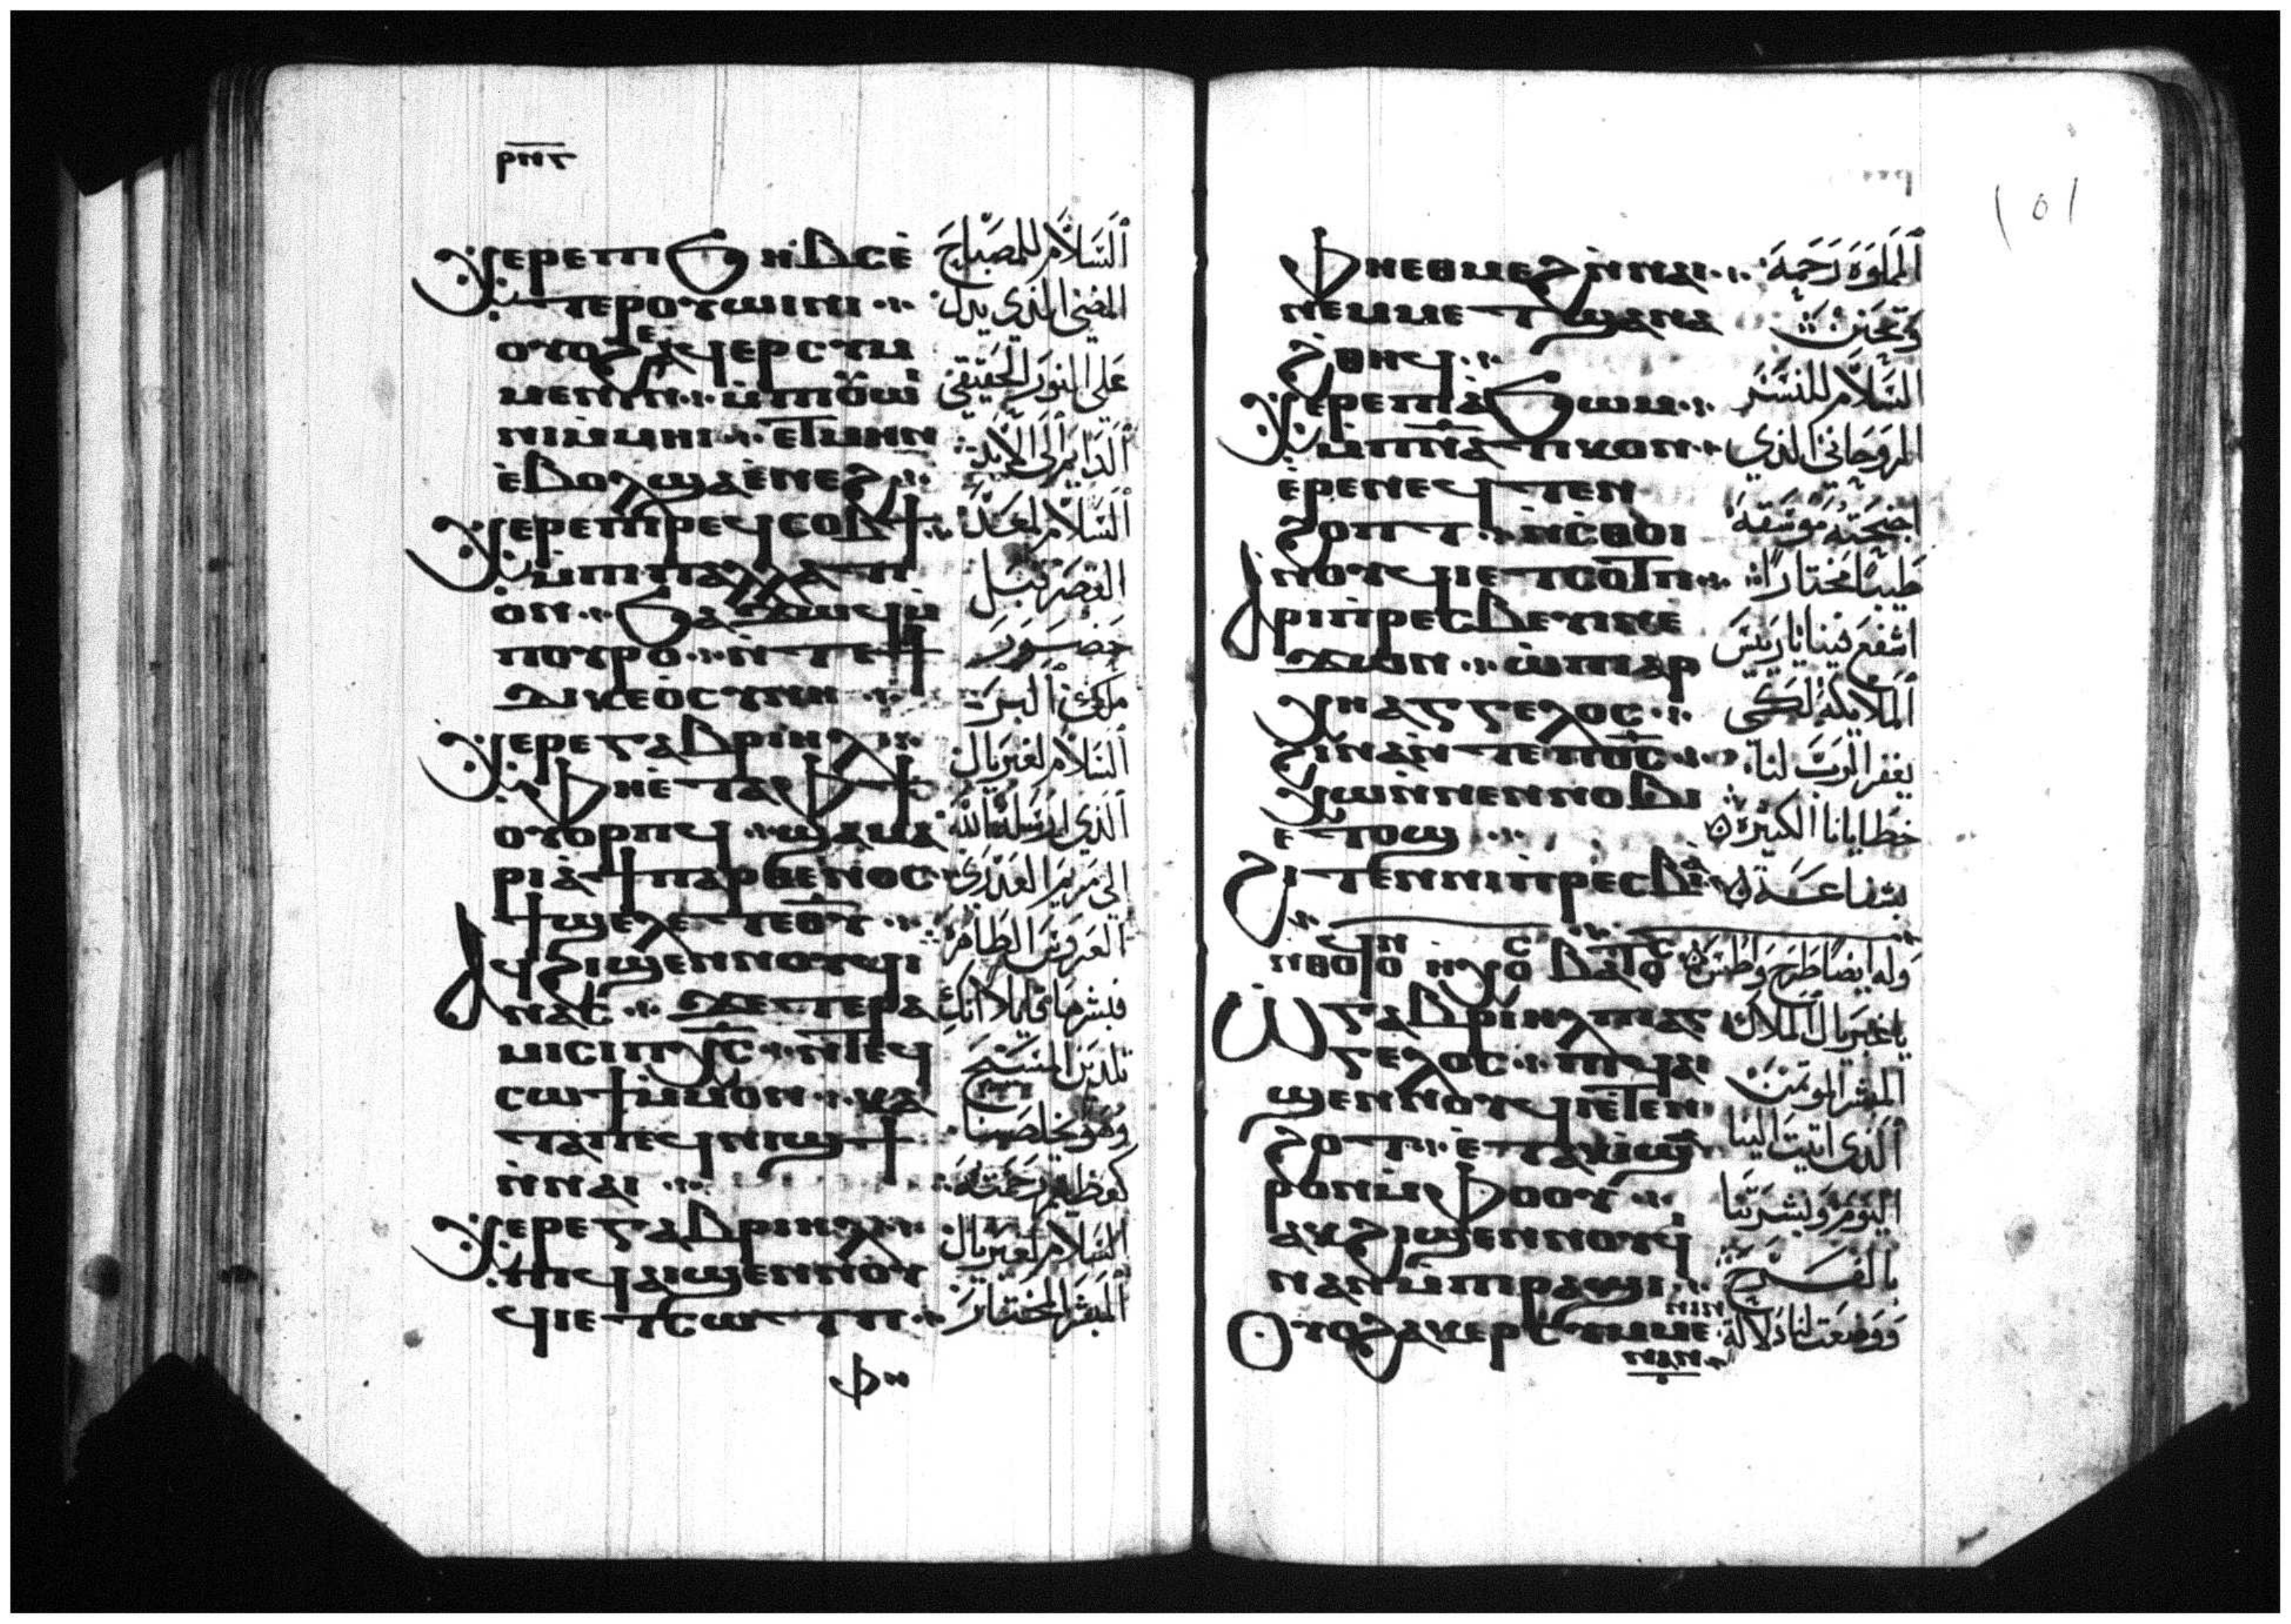 ⲣⲛⲋ
Ⲭⲉⲣⲉ ⲡⲓϧⲏⲃⲥ ⲉ̀
ⲧⲉⲣⲟⲩⲱⲓⲛⲓ
ⲟⲩⲟϩ ⲉϥⲉⲣⲥⲩⲙ
ⲙⲉⲛⲓⲛ ⲙ̀ⲡⲓⲟⲩⲱⲓ
ⲛⲓ ⲙ̀ⲙⲏⲓ ⲉⲧⲙⲏⲛ
ⲉ̀ⲃⲟⲗ ϣⲁ ⲉ̀ⲛⲉϩ
Ⲭⲉⲣⲉ ⲡⲓⲣⲉϥⲥⲟⲃϯ
ⲙ̀ⲡⲓⲡⲁⲗⲗⲁⲧⲓ
ⲟⲛ ϧⲁϫⲱϥ ⲙ̀
ⲡⲟⲩⲣⲟ ⲛ̀ⲧⲉϯ
ⲇⲓⲕⲉⲟⲥⲩⲛⲏ
Ⲭⲉⲣⲉ ⲅⲁⲃⲣⲓⲏⲗ
ⲫⲏⲉ̀ⲧⲁⲫϯ
ⲟⲩⲟⲣⲡϥ ϣⲁ ⲙⲁ
ⲣⲓⲁ ϯⲡⲁⲣⲑⲉⲛⲟⲥ
ϯϣⲉⲗⲉⲧ ⲉⲑⲩ
Ⲁϥϩⲓϣⲉⲛⲛⲟⲩϥⲓ
ⲛⲁⲥ ϫⲉ ⲧⲉⲣⲁ
ⲙⲓⲥⲓ ⲡⲭⲥ ⲛ̀ⲧⲉϥ
ⲥⲱϯ ⲙ̀ⲙⲟⲛ ⲕⲁ
ⲧⲁ ⲡⲉϥⲛⲓϣϯ
ⲛ̀ⲛⲁⲓ
Ⲭⲉⲣⲉ ⲅⲁⲃⲣⲓⲏⲗ
ⲡⲓϥⲁⲓϣⲉⲛⲛⲟⲩ
ϥⲓ ⲉⲧⲥⲱⲧⲡ
ⲫⲏ
السَّلَام للمصباح
المضى الذي يدل
على النور الحقيقى
الدايم الى الابد
السلام لمعد
القصر قبل
حضور
ملك البر
السلام لغبريال
الذي ارسله الله
الى مريم العذرى
العروس الطاهرة
فبشرها قايلا انك
تلدين المسيح
وهو يخلصنا
كعظيم رحمته
السلام لغبريال
المبشر المختار
101
ⲫⲏⲉⲑⲙⲉϩ ⲛ̀ⲛⲁⲓ
ⲛⲉⲙ ⲙⲉⲧϣⲁⲛⲁ
ϩⲑⲏϥ
Ⲭⲉⲣⲉ ⲡⲓⲁϧⲱⲙ
ⲙ̀ⲡⲛⲁⲧⲓⲕⲟⲛ
ⲉ̀ⲣⲉ ⲛⲉϥⲧⲉⲛ
ϩ ⲟⲡⲧ ⲛ̀ⲥⲑⲟⲓ
ⲛⲟⲩϥⲓ ⲉⲧⲥⲟⲧⲡ
Ⲁⲣⲓⲡⲣⲉⲥⲃⲉⲩⲓⲛ ⲉ̀
ϫⲱⲛ ⲱ̀ ⲡⲓⲁⲣ
ⲭⲏⲁⲅⲅⲉⲗⲟⲥ
ϩⲓⲛⲁ ⲛ̀ⲧⲉ ⲡⲟⲥ
ⲭⲱ ⲛ̀ⲛⲉⲛⲛⲟⲃⲓ
ⲉⲧⲟϣ
Ϩⲓⲧⲉⲛ ⲛⲓⲡⲣⲉⲥⲃⲓⲁ
ⲛ̀ⲑⲟϥ ⲟⲛ ⲏⲭⲟⲥ ⲃⲁⲧⲟⲥ
Ⲱ̀ ⲅⲁⲃⲣⲓⲏⲗ ⲡⲓⲁⲅ
ⲅⲉⲗⲟⲥ ⲡⲓϥⲁⲓ
ϣⲉⲛⲛⲟⲩϥⲓ ⲉ̀ⲧⲉⲛ
ϩⲟⲧ ⲉ̀ⲧⲁⲕⲓ ϣⲁ
ⲣⲟⲛ ⲙ̀ⲫⲟⲟⲩ
ⲁⲕϩⲓϣⲉⲛⲛⲟⲩϥⲓ
ⲛⲁⲛ ⲙ̀ⲡⲓⲣⲁϣⲓ
Ⲟⲩⲟϩ ⲁⲕⲉⲣⲥⲩⲙⲙⲉ
ⲛⲓⲛ
ⲛⲁⲛ
المملوه رحمة
وتحنن
السلام للنسر
الروحاني الذي
اجنحته موسقة
طيبا مختارا
اشفع فينا يا ريس
الملايكة لكى
يغفر الرب لنا
خطايانا الكثيرة
بشفاعة
وله ايضا طرح واطس
يا غبريال الملاك
المبشر الموتمن
الذى اتيت الينا
اليوم وبشرتنا
بالفرح
ووضعت لنا دلالة